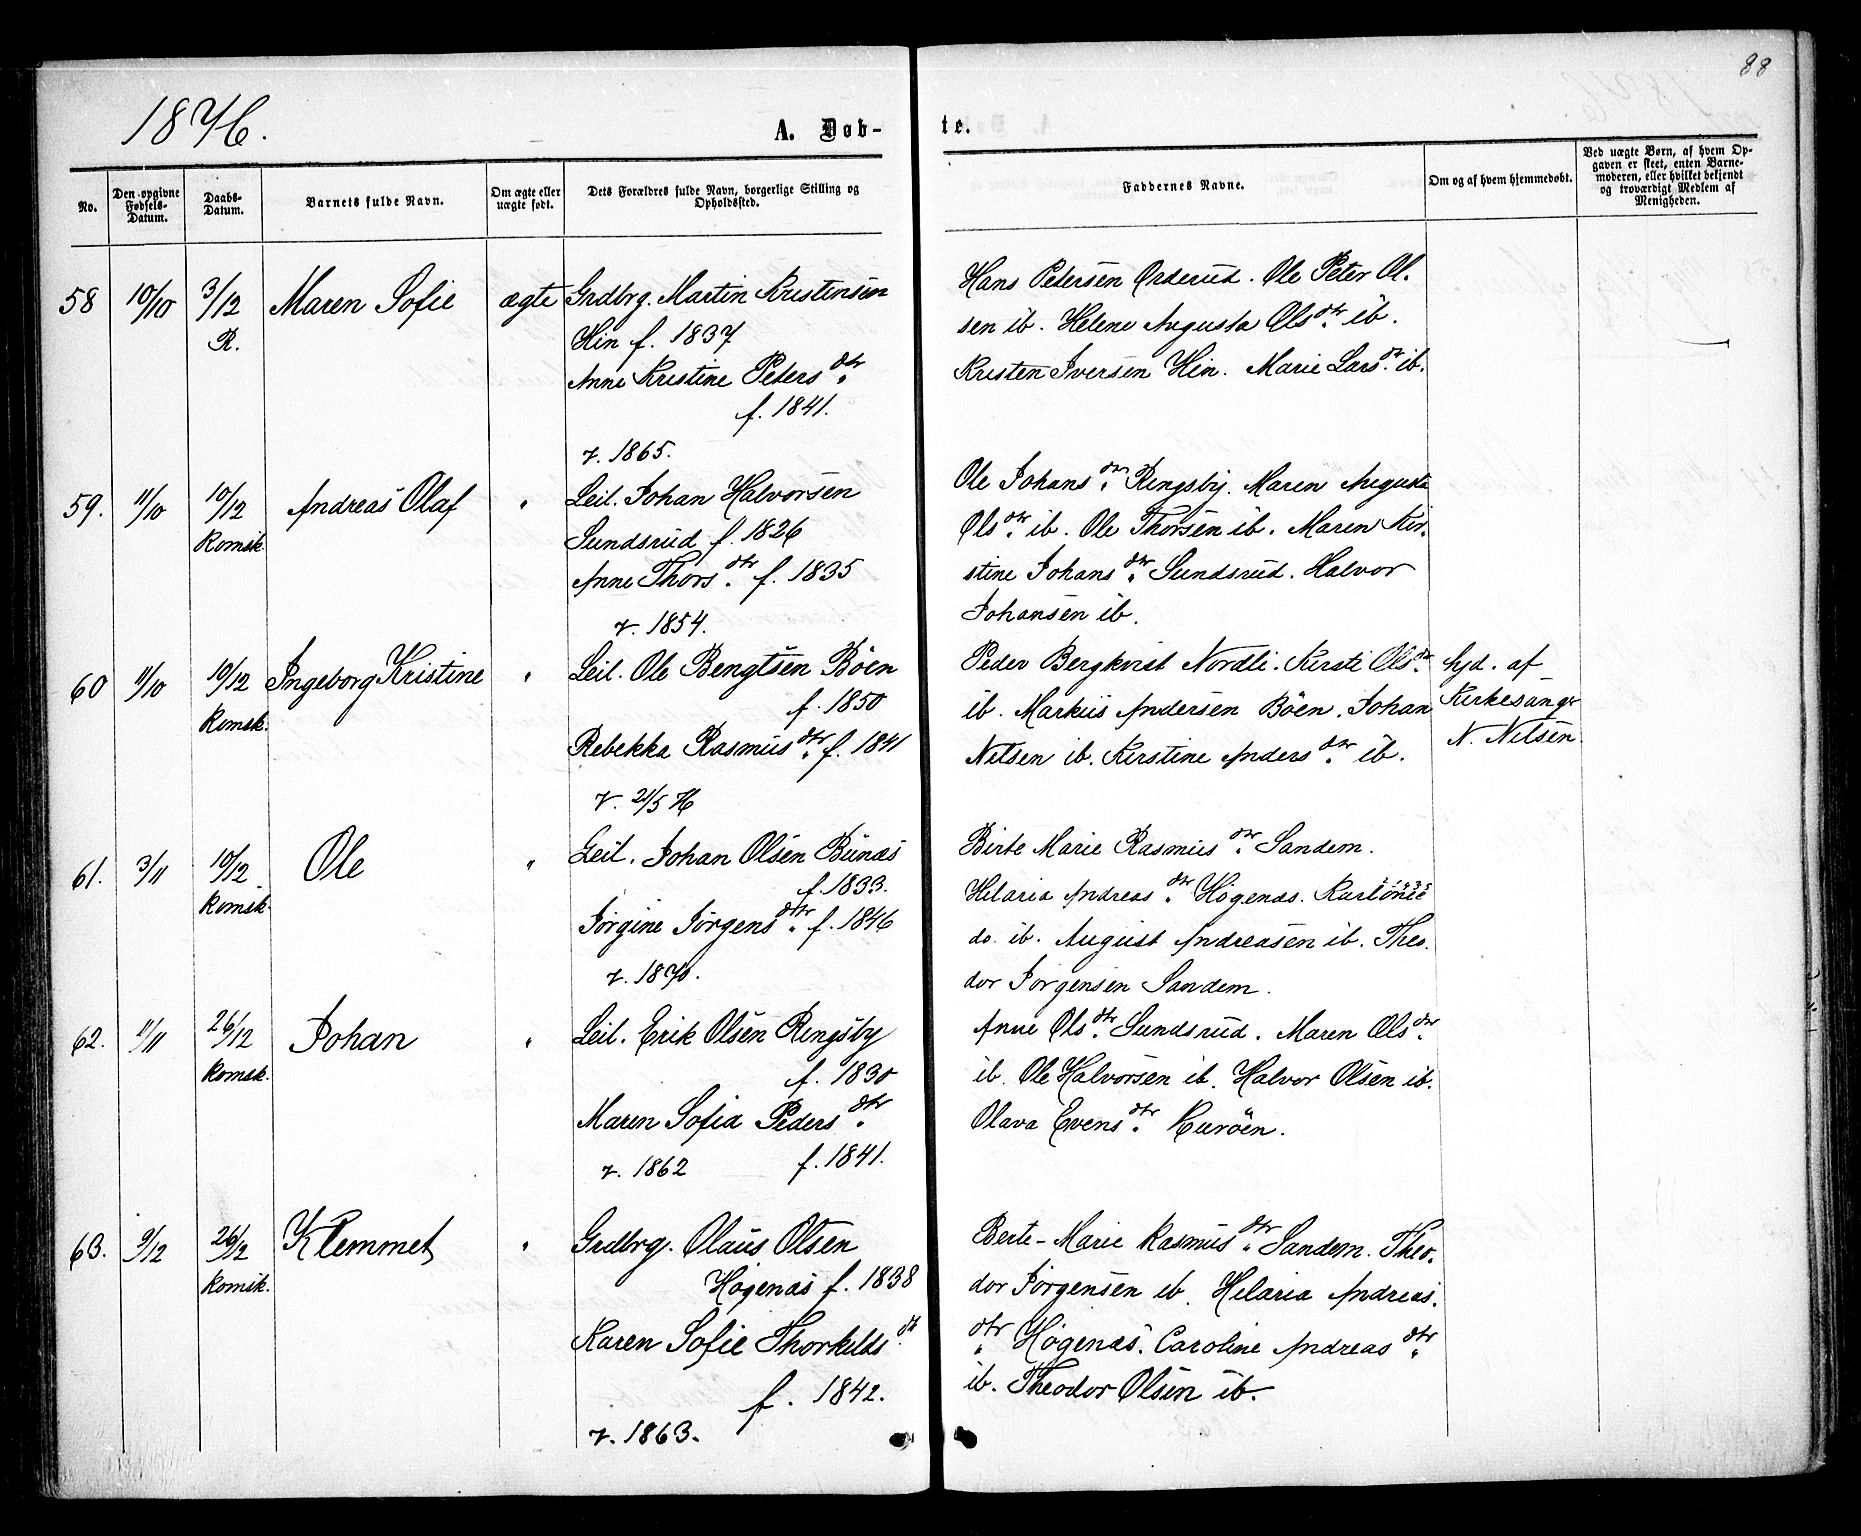 88
1876.
A. Døb-
te.
No.
Den opgivne Fødsels-Datum.
Daabs-Datum.
Barnets fulde Navn.
Om ægte eller uægte født.
Dets Forældres fulde Navn, borgerlige Stilling og Opholdssted.
Faddernes Navne.
Om og af hvem hjemmedøbt.
Ved uægte Børn, af hvem Op-
gaven er skeet, enten Barne-
moderen, eller hvilket bekjendt
og troværdigt Medlem af
Menigheden.
58 10/10 3/12 Maren Sofie ægte Grdbrg. Martin Kristinsen
R. Hin f. 1837
Anne Kristine Peters dtr.
f. 1841.
v. 1865.
Hans Petersen Orderud. Ole Peter Ol-
sen ib. Helene Augusta Ols dtr. ib.
Kristen Iversen Hin. Marie Lars dt. ib.
59. 11/10 10/12 Andreas Olaf " Leil. Johan Halvorsen
Romsk. Sundsrud f. 1826
Anne Thors dtr. f. 1835
v. 1854.
Ole Johans dtr. Ringsby. Maren Augusta
Ols dtr. ib. Ole Thorsen ib. Maren Kir-
stine Johans dtr. Sundsrud. Halvor
Johansen ib.
60 11/10 10/12 Ingeborg Kristine " Leil. Ole Bengtsen Böen
Romsk. f. 1850
Rebekka Rasmus dtr. f. 1841
v. 21/5 76
Peder Bergkvist Nordli. Kirsti Ols dtr.
ib. Markus Andersen Böen. Johan
Nilsen ib. Kirstine Anders dtr. ib.
hjd. af
Kirkesangr
N. Nilsen
61. 3/11 10/12 Ole " Leil. Johan Olsen Bunæs
Romsk. f. 1833.
Jørgine Jørgens dtr. f. 1846
v. 1870.
Birte Marie Rasmus dtr. Sandem.
Hilaria Andreas dtr. Høgenæs.
do. ib. August Andreasen ib. Theo-
dor Jørgensen Sandem.
62. 11/11 26/12 Johan " Leil. Erik Olsen Ringsby
Romsk. f. 1830
Maren Sofia Peders dtr.
v. 1862 f. 1841.
Anne Ols dtr. Sundsrud. Maren Ols dtr.
ib. Ole Halvorsen ib. Halvor Olsen ib.
Olava Evens dtr. Kuröen.
63. 9/12 26/12 Klemmet " Grdbrg. Olaus Olsen
Romsk. Høgenæs f. 1838
Karen Sofie Thorkilds dt.
f. 1842.
v. 1863.
Berte-Marie Rasmus dtr. Sandem. Theo-
dor Jørgensen ib. Hilaria Andreas-
dtr. Høgenæs. Caroline Andreas dtr.
ib. Theodor Olsen ib.